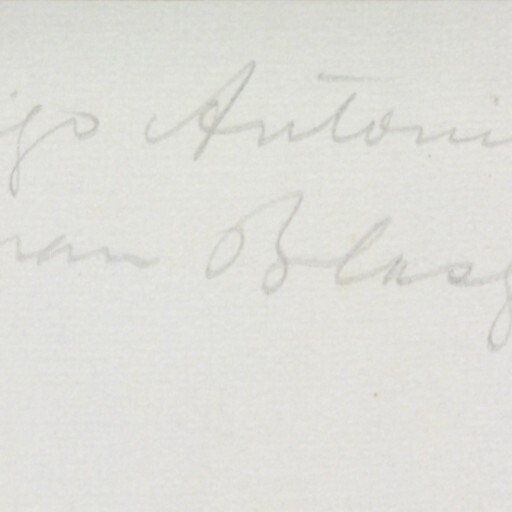 igo Antoni
ran Blasq